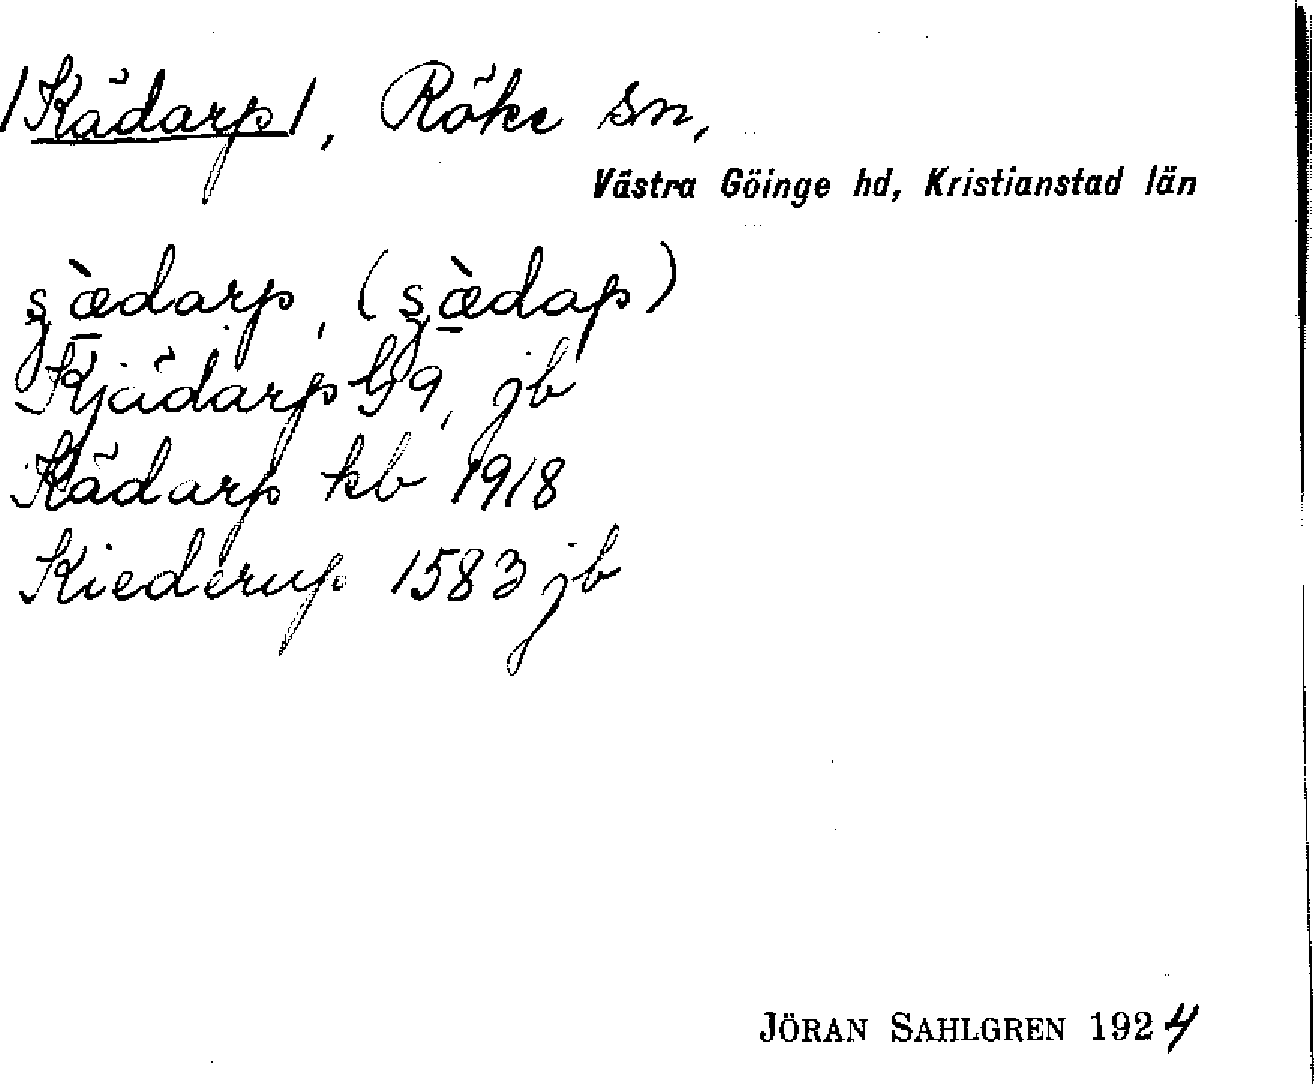 /Kädarp/, Röke sn,
Västra Göinge hd, Kristianstad län
ʂæ̀darp, (ʂæ̀dap)
Kjädarp G9, jb
Kädarp kb 1918
Kiederup 1583 jb
JÖRAN SAHLGREN 1924